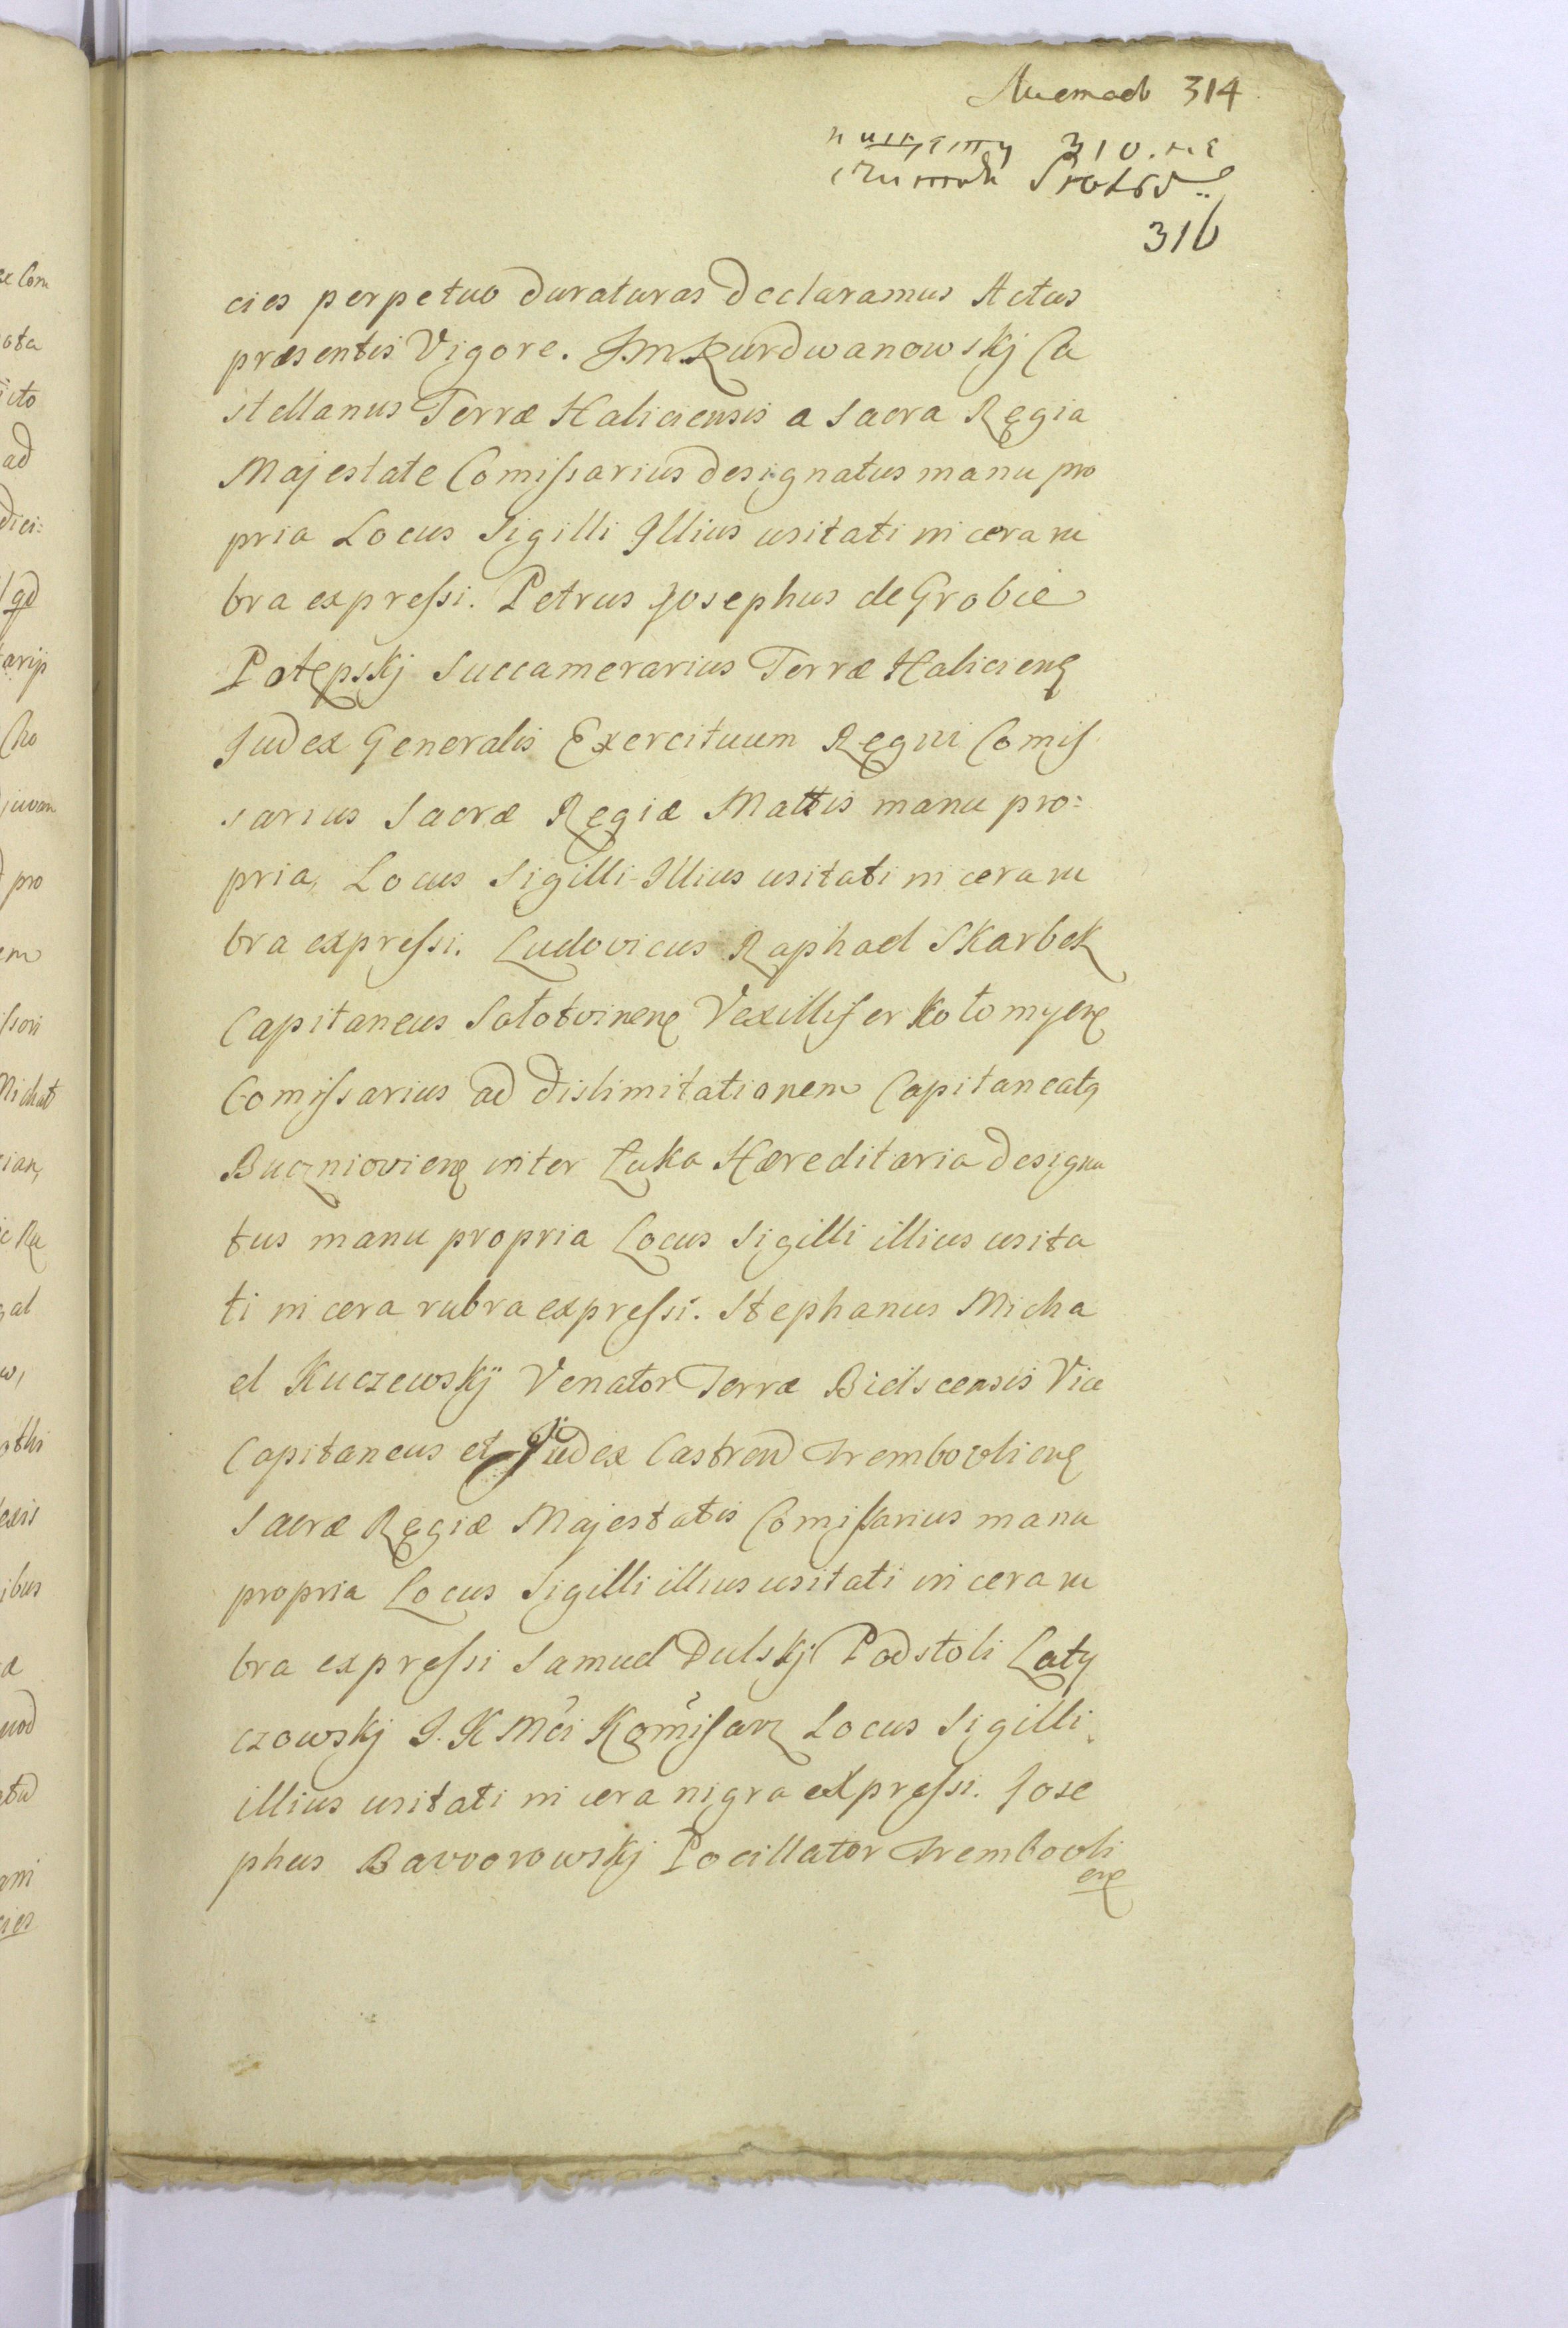 Листов 314
310.
316
cies perpetuo duraturas declaramus Actus
præsentis Vigore. Jm Kurdwanowskj Ca
stellanus Terræ Haliciensis a Sacra Regia
Majestate Comiſsarius designatus manu pro
pria Locus Sigilli Illius usitati in cera ru
bra expreſsi. Petrus Josephus de Grobie
Potępskj Succamerarius Terræ Halicienę
Judex Generalis Exercituum Regni Comiſ
sarius Sacræ Regiæ Mattis manu pro:
pria, Locus Sigilli Illius usitati in cera ru
bra expreſsi. Ludovicus Raphael Skarbek
Capitaneus Sołotvinenę Vexillifer Kołomyenę
Comiſsarius ad dislimitationem Capitaneatq
Buczniovienę inter Łuka Hæreditaria designa
tus manu propria Locus Sigilli illius usita
ti in cera rubra expreſsi. Stephanus Micha
el Kuczewskÿ Venator Terræ Bielscensis Vice
Capitaneus et Judex Castren Trembovlienę
Sacræ Regiæ Majestatis Comiſsarius manu
propria Locus Sigilli illius usitati in cera ru
bra expreſsi Samuel Dulskj Podstoli Laty
czowskj J. K Mci Komiſarz Locus Sigilli
illius usitati in cera nigra expreſsi. Jose
phus Bavorowskj Pocillator Trembovli
enę